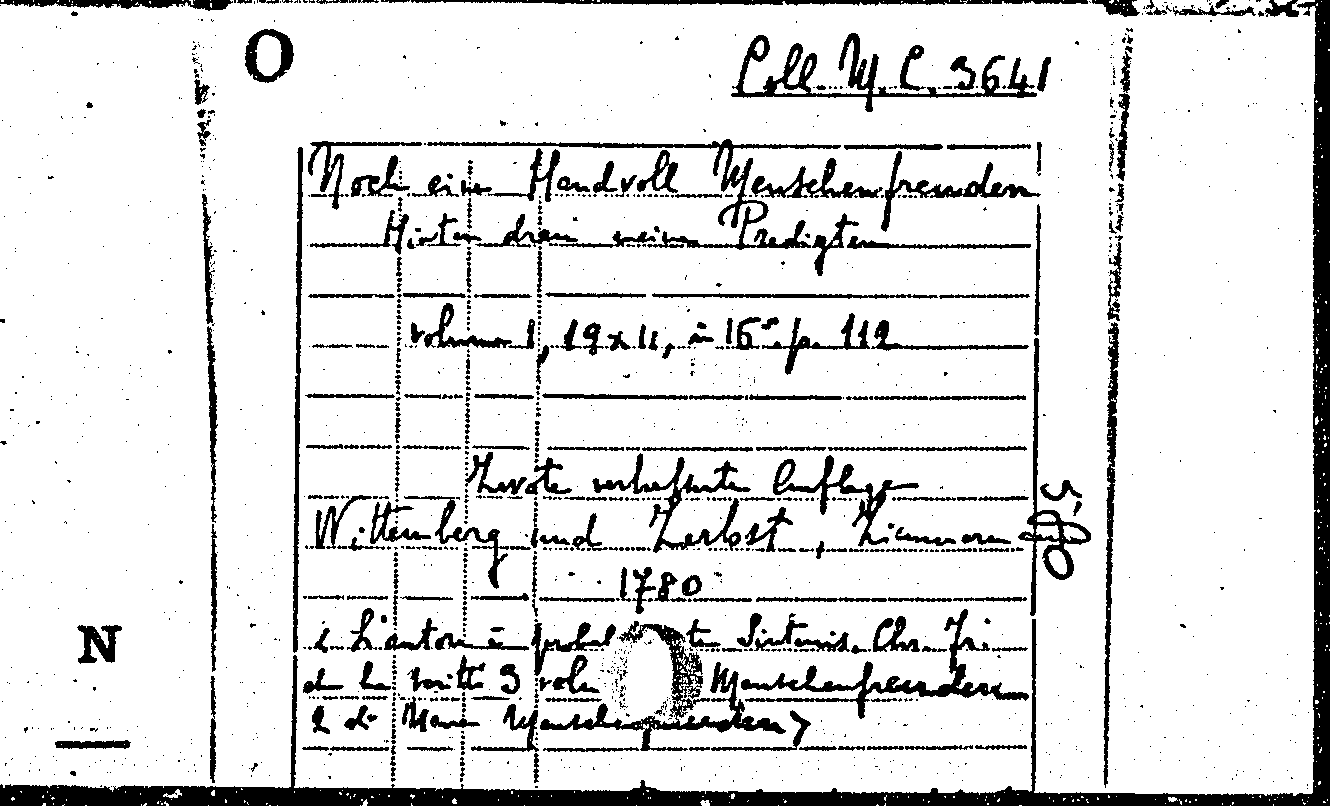 O
Coll. M. C. 3641
Noch eine Handvoll Menschenfreuden
Hinten dran meinen Predigten
volume 1, 19 x 11, in 16° p. 112
Zwote verbesserte Auflage
Wittenberg und Zerbst, Zimmermann
1780
Sintenis. Chr. Fri.
N
3 Menschenfreuden
2 di Menschenfreuden>